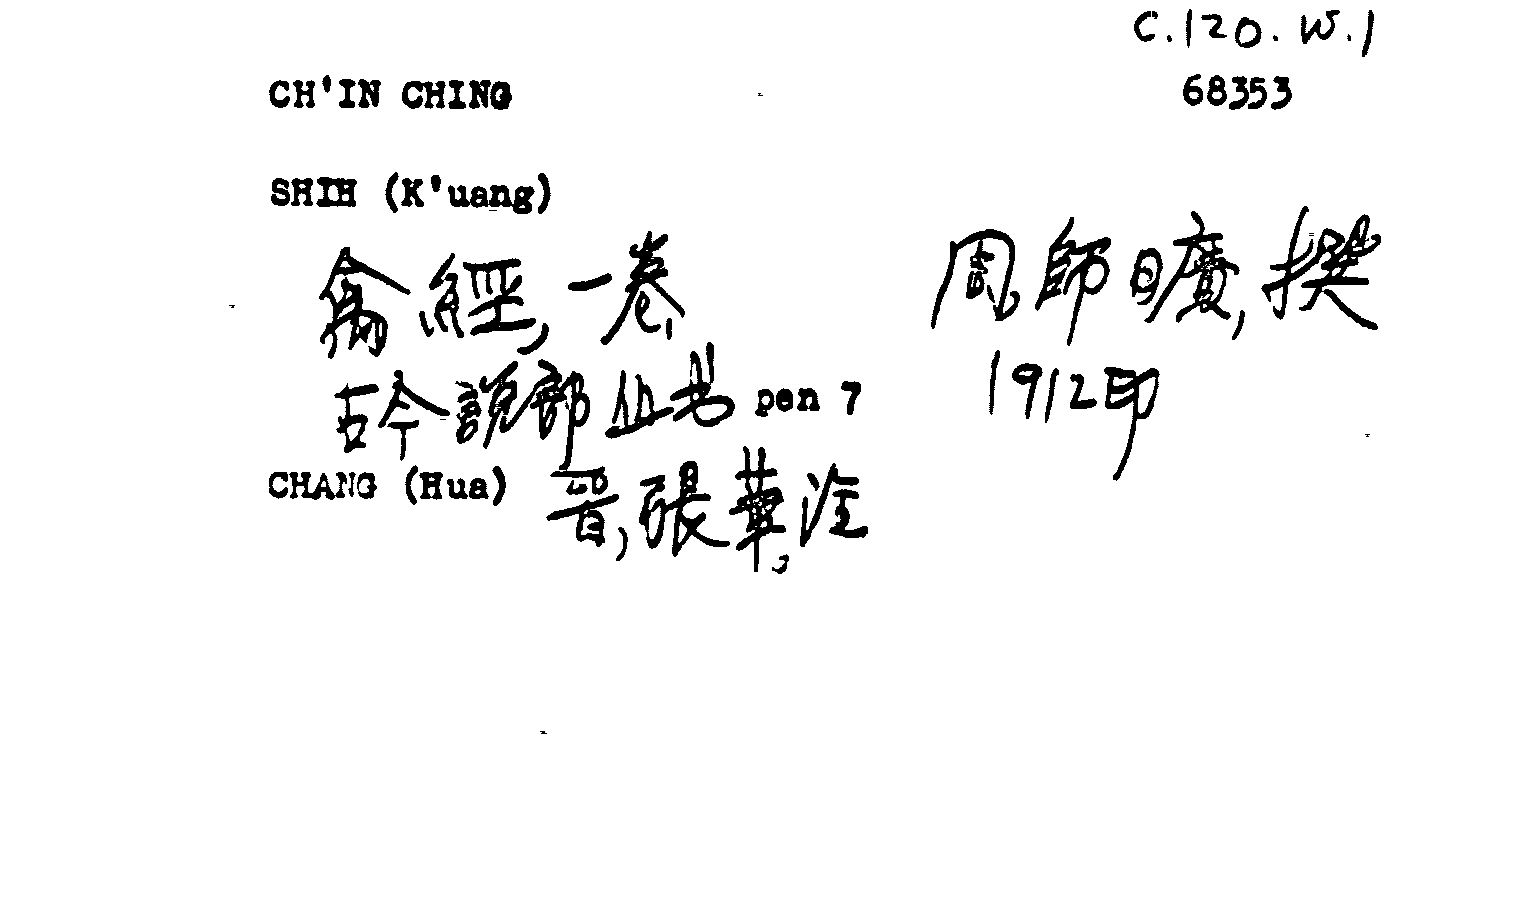 C.120.W.1
CH'IN CHING 68353
SHIH (K'uang)
禽經,一卷, 周師曠,撰
古今說部丛书 pen 7 1912印
CHANG (Hua) 晉,張華,注